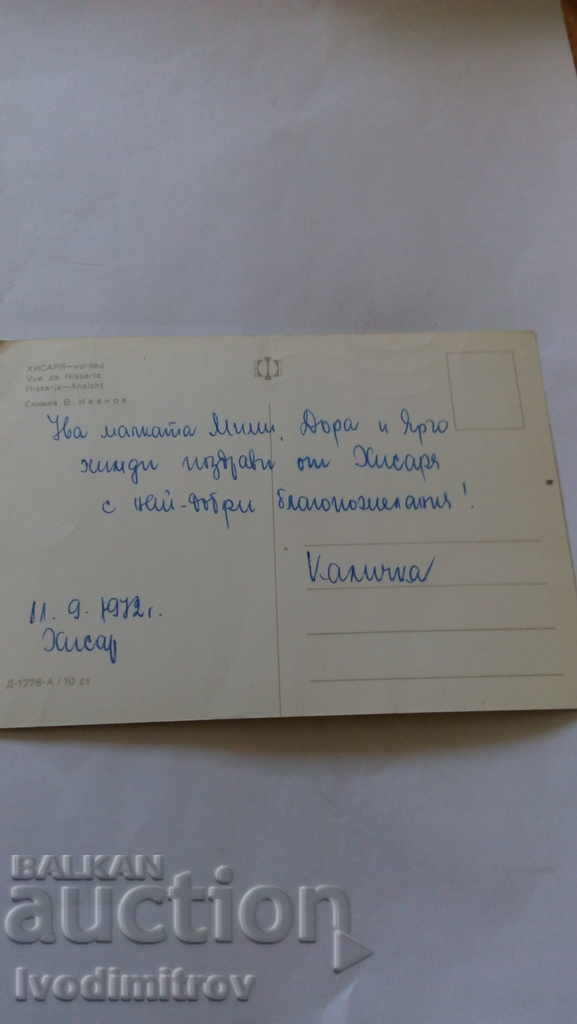 ХИСАРЯ — изглед
Vue de Hissaria
Hissarja — Ansicht
Снимка В. Иванов
малката Мими, Дора и
поздрави от Хисаря
с най-добри благопожелания!
Каличка
11. 9. 1972 г.
Хисар
Д-1778-А / 10 ст
BALKAN
auction
Ivodimitrov